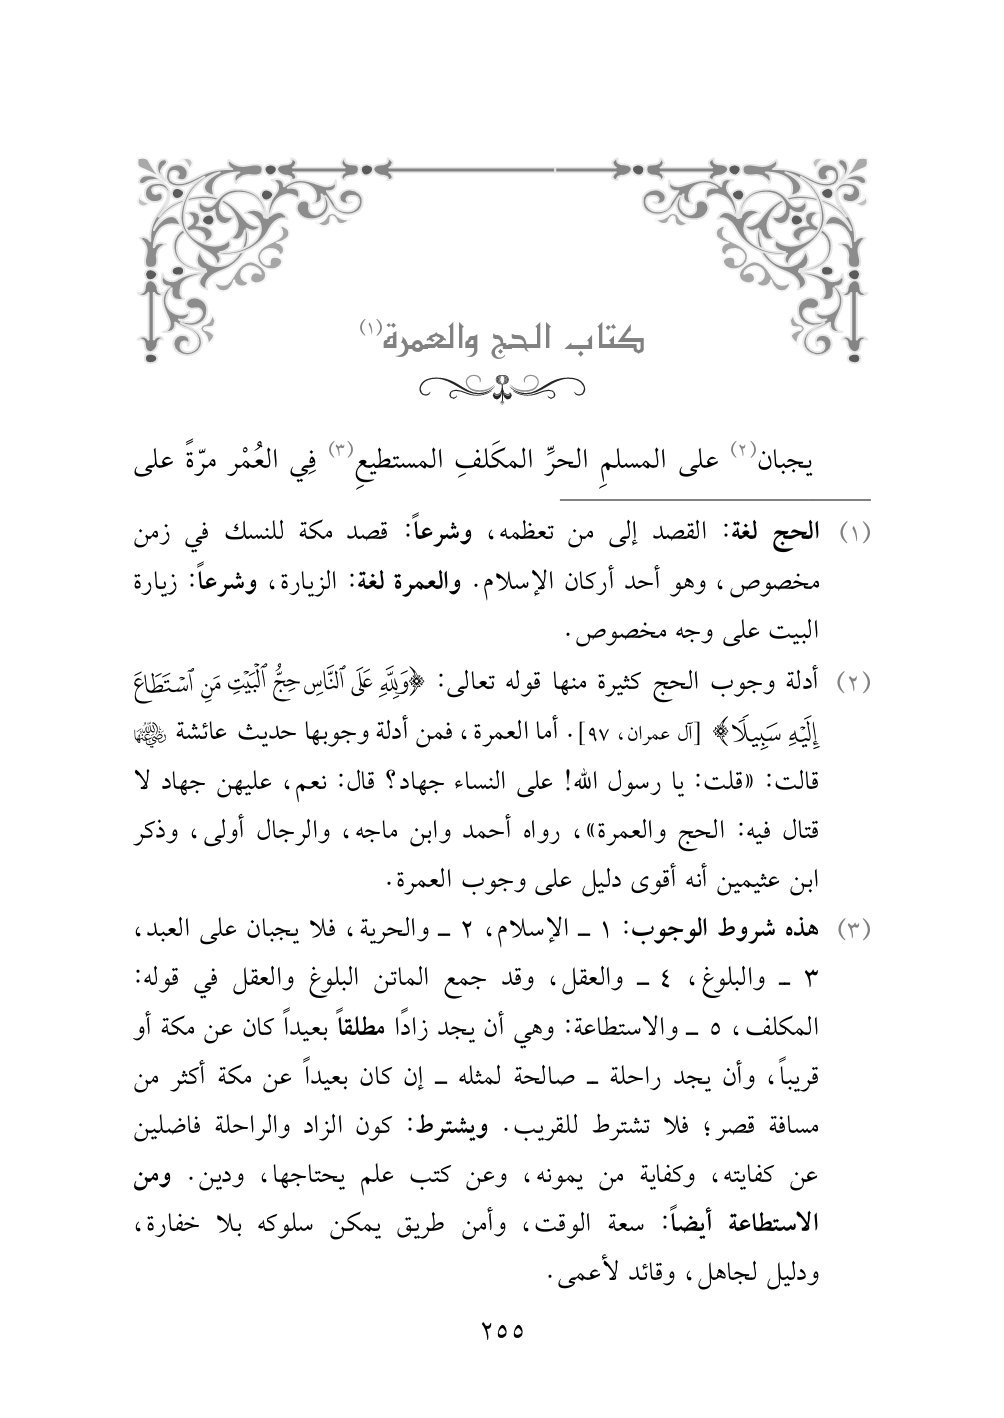 كتاب الحج والعمرة(١)
يجبان(٢) على المسلمِ الحرِّ المكَلفِ المستطيعِ(٣) فِي العُمْر مرّةً على
(١) الحج لغة: القصد إلى من تعظمه، وشرعاً: قصد مكة للنسك في زمن
مخصوص، وهو أحد أركان الإسلام. والعمرة لغة: الزيارة، وشرعاً: زيارة
البيت على وجه مخصوص.
(٢) أدلة وجوب الحج كثيرة منها قوله تعالى: ﴿وَلِلَّهِ عَلَى ٱلنَّاسِ حِجُّ ٱلْبَيْتِ مَنِ ٱسْتَطَاعَ
إِلَيْهِ سَبِيلًا﴾ [آل عمران، ٩٧]. أما العمرة، فمن أدلة وجوبها حديث عائشة رضي الله عنها
قالت: «قلت: يا رسول الله! على النساء جهاد؟ قال: نعم، عليهن جهاد لا
قتال فيه: الحج والعمرة»، رواه أحمد وابن ماجه، والرجال أولى، وذكر
ابن عثيمين أنه أقوى دليل على وجوب العمرة.
(٣) هذه شروط الوجوب: ١ ـ الإسلام، ٢ ـ والحرية، فلا يجبان على العبد،
٣ ـ والبلوغ، ٤ ـ والعقل، وقد جمع الماتن البلوغ والعقل في قوله:
المكلف، ٥ ـ والاستطاعة: وهي أن يجد زادًا مطلقاً بعيداً كان عن مكة أو
قريباً، وأن يجد راحلة ـ صالحة لمثله ـ إن كان بعيداً عن مكة أكثر من
مسافة قصر؛ فلا تشترط للقريب. ويشترط: كون الزاد والراحلة فاضلين
عن كفايته، وكفاية من يمونه، وعن كتب علم يحتاجها، ودين. ومن
الاستطاعة أيضاً: سعة الوقت، وأمن طريق يمكن سلوكه بلا خفارة،
ودليل لجاهل، وقائد لأعمى.
٢٥٥